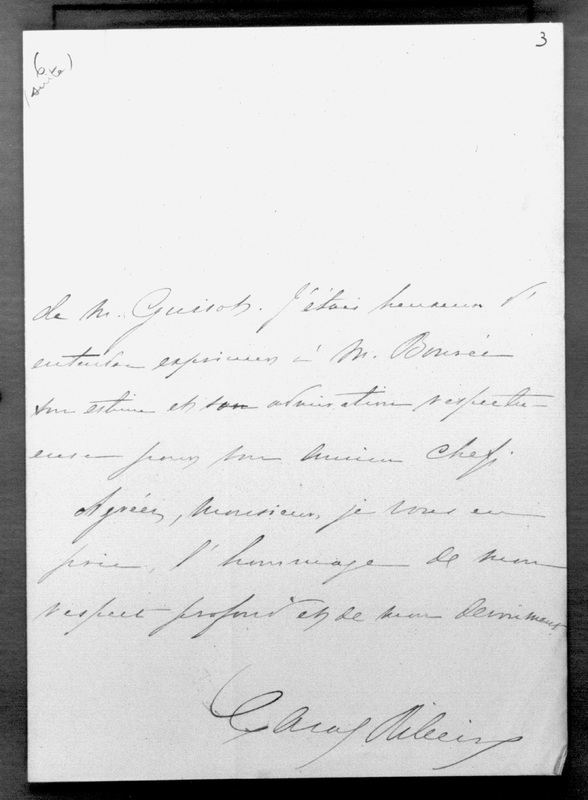 3
(6
suite)
de M. Guizot. J'étais heureux d'
entendre exprimer à M. Bourée
son estime et son admiration respectu-
euse pour son ancien chef.
Agréez, Monsieur, je vous en
prie, l'hommage de mon
respect profond et de mon dévoument
Ribeiro